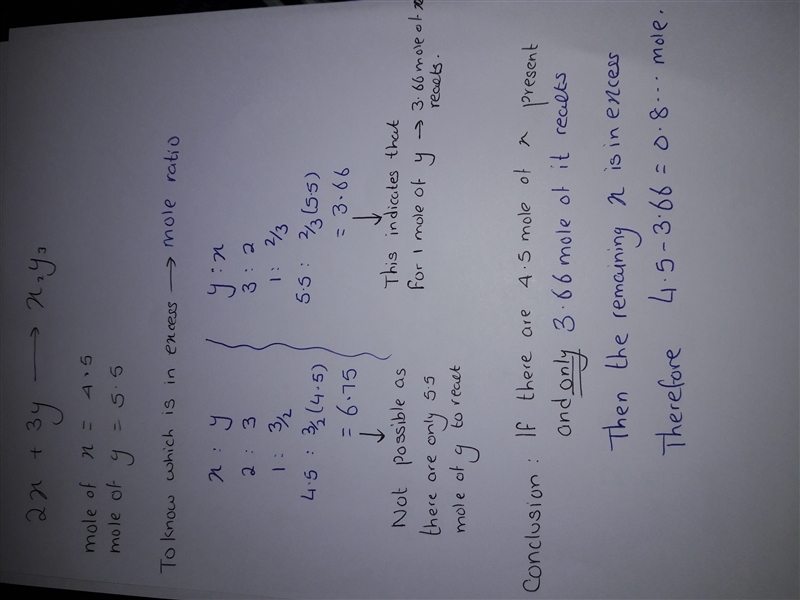 2x + 3y → x₂y₃
mole of x = 4.5
mole of y = 5.5
To know which is in excess → mole ratio
x : y
2 : 3
1 : 3/2
4.5 : 3/2 (4.5)
= 6.75
↓
Not possible as
there are only 5.5
mole of y to react
y : x
3 : 2
1 : 2/3
5.5 : 2/3 (5.5)
= 3.66
↓
This indicates that
for 1 mole of y → 3.66 mole of x
reacts.
Conclusion : If there are 4.5 mole of x present
and only 3.66 mole of it reacts
Then the remaining x is in excess
Therefore 4.5 - 3.66 = 0.8... mole.